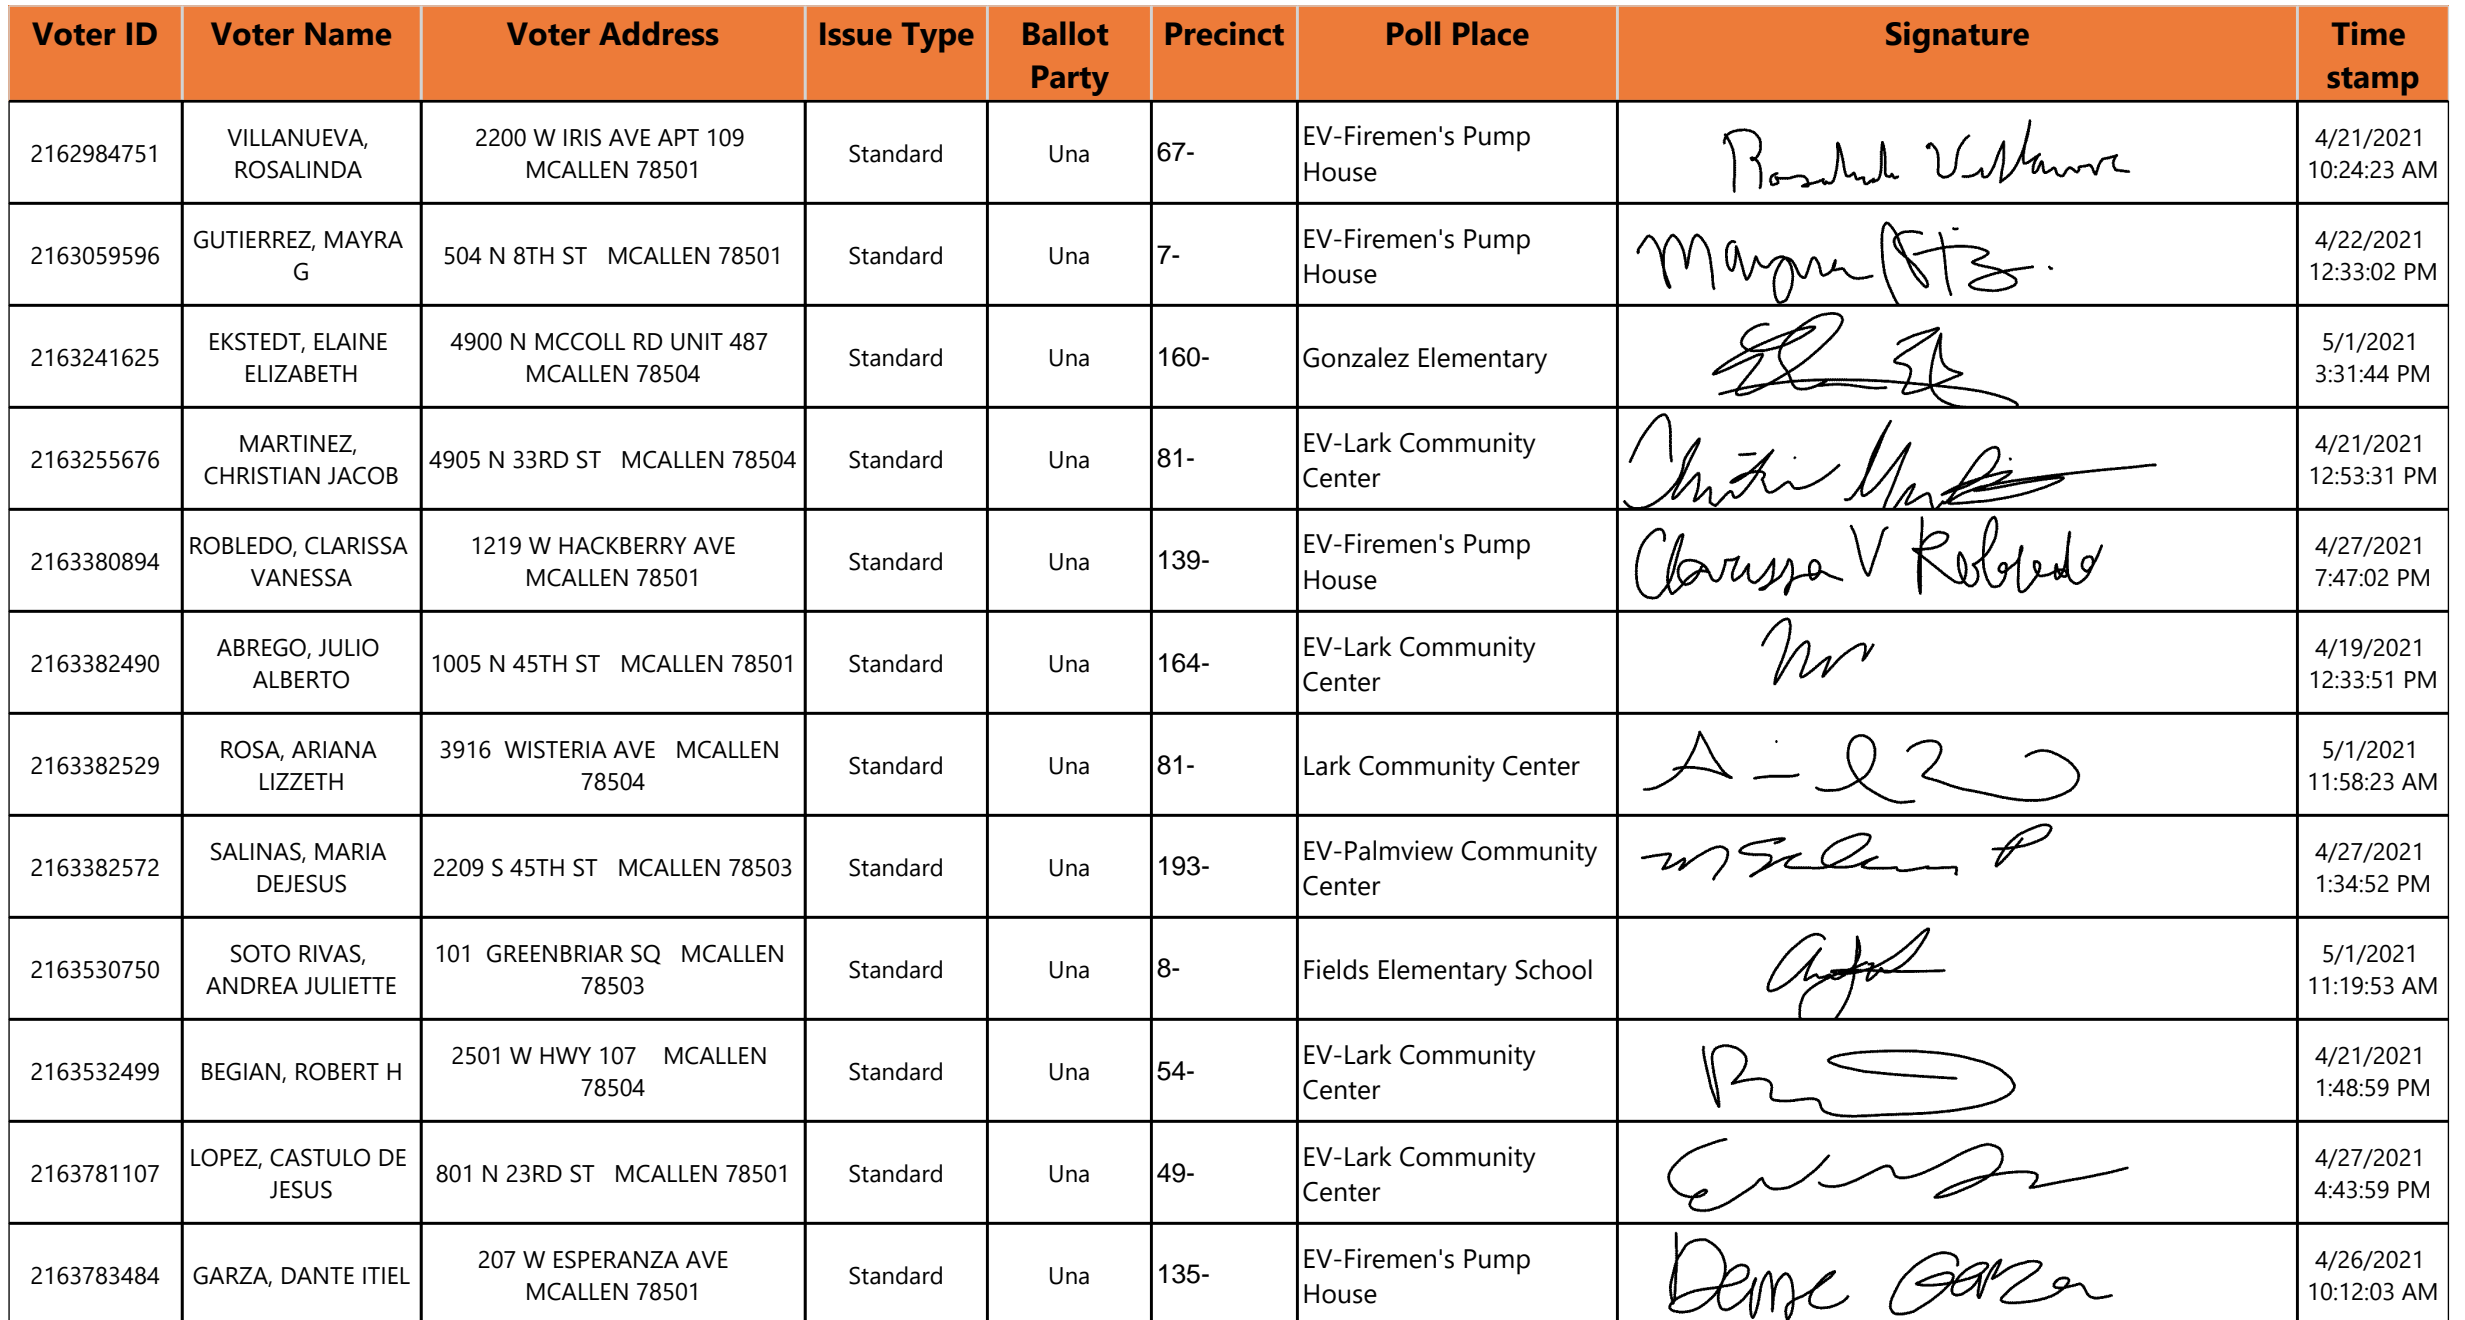 Voter ID Voter Name Voter Address Issue Type Ballot Party Precinct Poll Place Signature Time stamp
2162984751 VILLANUEVA, ROSALINDA 2200 W IRIS AVE APT 109 MCALLEN 78501 Standard Una 67- EV-Firemen's Pump House 4/21/2021 10:24:23 AM
2163059596 GUTIERREZ, MAYRA G 504 N 8TH ST MCALLEN 78501 Standard Una 7- EV-Firemen's Pump House 4/22/2021 12:33:02 PM
2163241625 EKSTEDT, ELAINE ELIZABETH 4900 N MCCOLL RD UNIT 487 MCALLEN 78504 Standard Una 160- Gonzalez Elementary 5/1/2021 3:31:44 PM
2163255676 MARTINEZ, CHRISTIAN JACOB 4905 N 33RD ST MCALLEN 78504 Standard Una 81- EV-Lark Community Center 4/21/2021 12:53:31 PM
2163380894 ROBLEDO, CLARISSA VANESSA 1219 W HACKBERRY AVE MCALLEN 78501 Standard Una 139- EV-Firemen's Pump House Clarissa V Robledo 4/27/2021 7:47:02 PM
2163382490 ABREGO, JULIO ALBERTO 1005 N 45TH ST MCALLEN 78501 Standard Una 164- EV-Lark Community Center 4/19/2021 12:33:51 PM
2163382529 ROSA, ARIANA LIZZETH 3916 WISTERIA AVE MCALLEN 78504 Standard Una 81- Lark Community Center 5/1/2021 11:58:23 AM
2163382572 SALINAS, MARIA DEJESUS 2209 S 45TH ST MCALLEN 78503 Standard Una 193- EV-Palmview Community Center 4/27/2021 1:34:52 PM
2163530750 SOTO RIVAS, ANDREA JULIETTE 101 GREENBRIAR SQ MCALLEN 78503 Standard Una 8- Fields Elementary School 5/1/2021 11:19:53 AM
2163532499 BEGIAN, ROBERT H 2501 W HWY 107 MCALLEN 78504 Standard Una 54- EV-Lark Community Center 4/21/2021 1:48:59 PM
2163781107 LOPEZ, CASTULO DE JESUS 801 N 23RD ST MCALLEN 78501 Standard Una 49- EV-Lark Community Center 4/27/2021 4:43:59 PM
2163783484 GARZA, DANTE ITIEL 207 W ESPERANZA AVE MCALLEN 78501 Standard Una 135- EV-Firemen's Pump House Garza 4/26/2021 10:12:03 AM